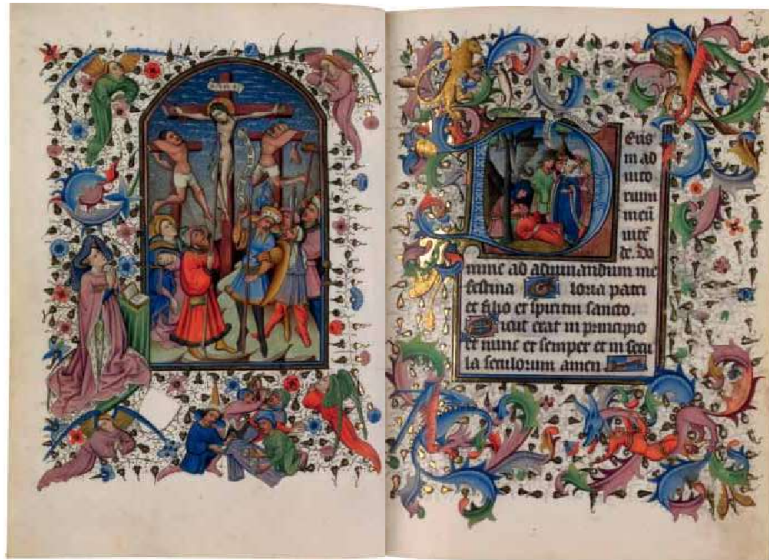 Deus
in ad
iuto
rium
meū
intē
de. Do
mine ad adiuuandum me
festina Gloria patri
et filio et spiritui sancto.
Sicut erat in principio
et nunc et semper et in secu
la seculorum amen